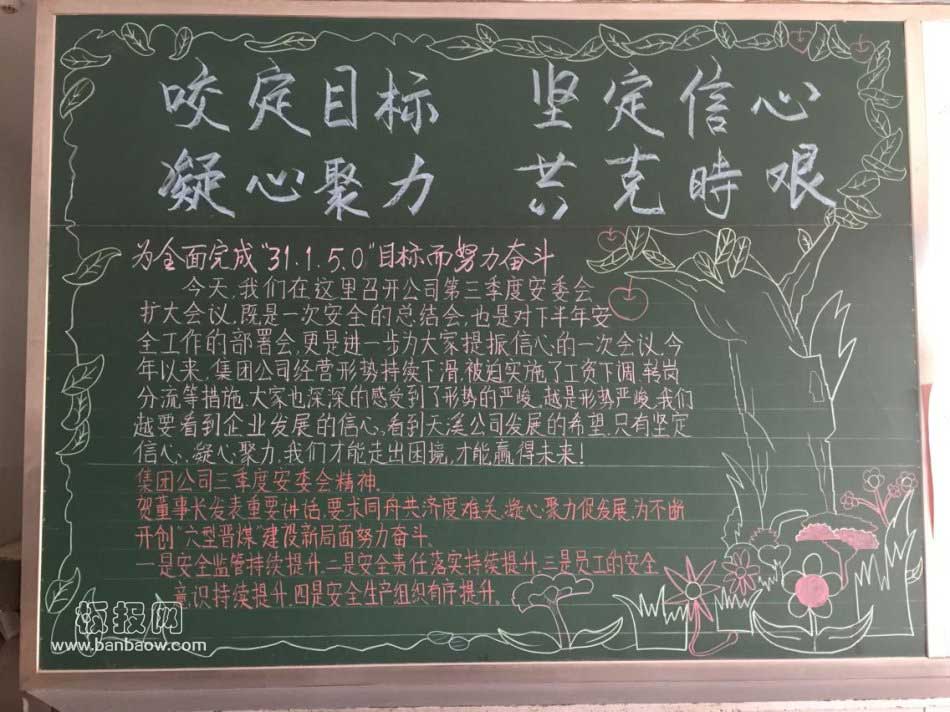 咬定目标 坚定信心
凝心聚力 共克時艰
为全面完成"31.1.5.0"目标而努力奋斗
今天,我们在这里召开公司第三季度安委会
扩大会议,既是一次安全的总结会,也是对下半年安
全工作的部署会,更是进一步为大家提振信心的一次会议,今
年以来,集团公司经营形势持续下滑,被迫实施了工资下调,转岗
分流等措施,大家也深深的感受到了形势的严峻,越是形势严峻,我们
越要看到企业发展的信心,看到天溪公司发展的希望,只有坚定
信心、凝心聚力,我们才能走出困境,才能赢得未来!
集团公司三季度安委会精神.
贺董事长发表重要讲话,要求同舟共济度难关,凝心聚力促发展,为不断
开创"六型晋煤"建设新局面努力奋斗.
一是安全监管持续提升,二是安全责任落实持续提升,三是员工的安全
意识持续提升,四是安全生产组织有序提升.
板报网
www.banbaow.com